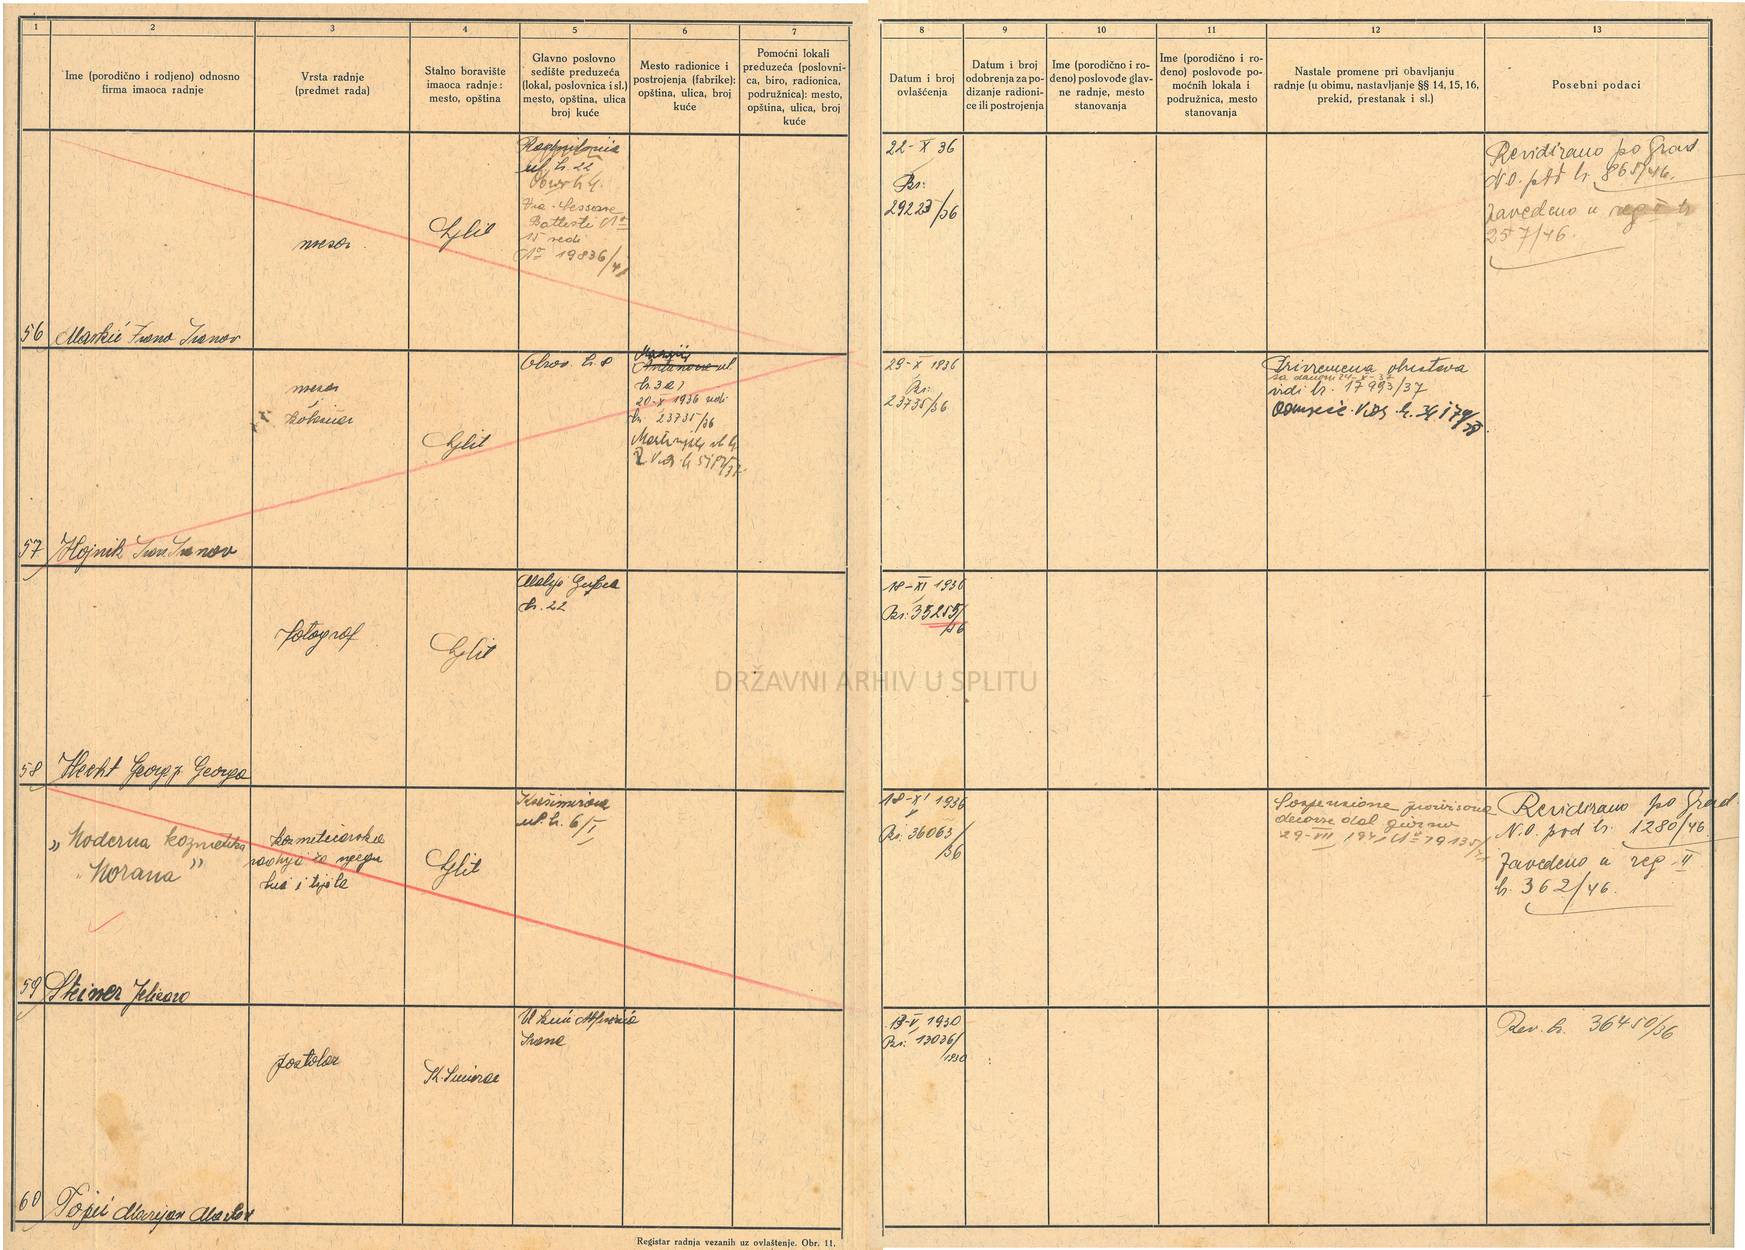 1
2
3
4
5
6
7
8
9
10
11
12
13
Ime (porodično i rodjeno) odnosno
firma imaoca radnje
Vrsta radnje
(predmet rada)
Stalno boravište
imaoca radnje:
mesto, opština
Glavno poslovno
sedište preduzeća
(lokal, poslovnica i sl.)
mesto, opština, ulica
broj kuće
Mesto radionice i
postrojenja (fabrike):
opština, ulica, broj
kuće
Pomoćni lokali
preduzeća (poslovni-
ca, biro, radionica,
podružnica): mesto,
opština, ulica, broj
kuće
Datum i broj
ovlašćenja
Datum i broj
odobrenja za po-
dizanje radioni-
ce ili postrojenja
Ime (porodično i ro-
đeno) poslovođe glav-
ne radnje, mesto
stanovanja
Ime (porodično i ro-
đeno) poslovođe po-
moćnih lokala i
podružnica, mesto
stanovanja
Nastale promene pri obavljanju
radnje (u obimu, nastavljanje §§ 14, 15, 16,
prekid, prestanak i sl.)
Posebni podaci
56
mesar
Split
ul. br. 22
Via Cesare
Battisti No
15 vedi
No 19836/41
22-X 36
Br:
29223/36
Revidirano po Grad
N.O. pod br. 865/46.
Zavedeno u reg II br
257/46.
57
Hojnik Ivan Ivanov
mesar
i
kobasičar
Split
Obrov br. 8
20-X 1936 vidi
br. 23735/36
29-X 1936
Br:
23735/36
Privremena obustava
vidi br. 17993/37
58
Hecht Georg p. Georga
fotograf
Split
Matije Gupca
br. 22
18-XI 1936
Br: 35255/
/36
59
„Moderna kozmetika
Morana”
Steiner Jelisava
kozmetičarska
radnja za njegu
lica i tijela
Split
Krešimirova
ul. br. 6/I
18-XI 1936
Br: 36063/
/36
Sospensione provisoria
decorre dal giorno
29-VII 1941 No 19135/41
Revidirano po Grad.
N.O. pod br. 1280/46.
Zavedeno u reg II
br. 362/46.
60
Topić Marijan
postolar
K. Sućurac
Ivana
13-V 1930
Br: 13036/
1930
Rev. br. 36450/36
DRŽAVNI ARHIV U SPLITU
Registar radnja vezanih uz ovlaštenje. Obr. 11.